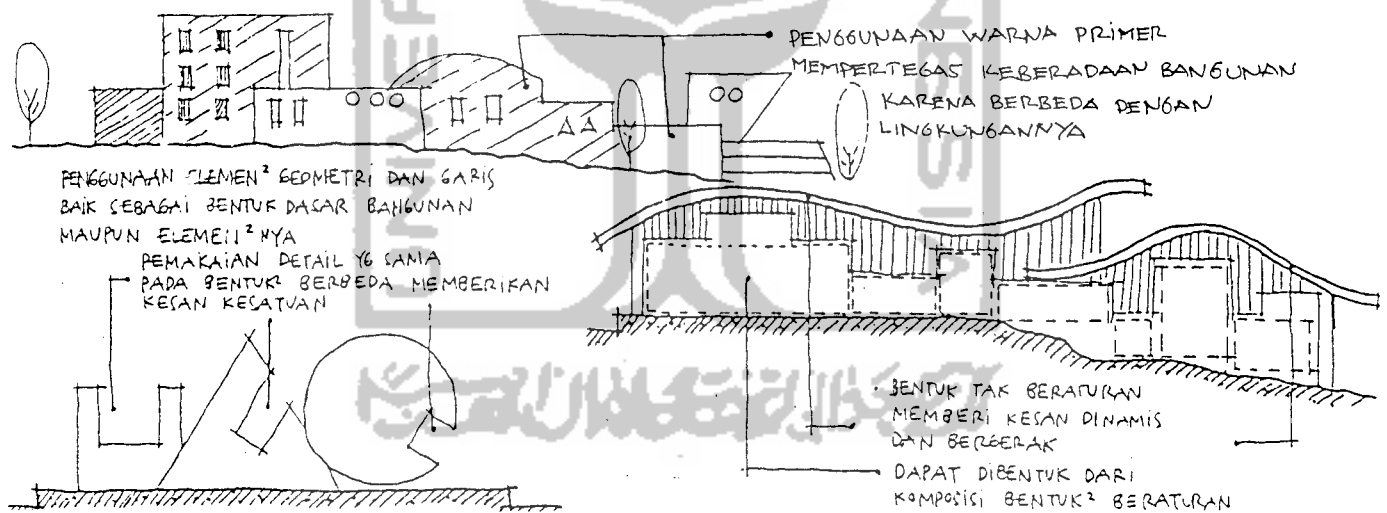 PENGGUNAAN WARNA PRIMER
MEMPERTEGAS KEBERADAAN BANGUNAN
KARENA BERBEDA DENGAN
LINGKUNGANNYA
PENGGUNAAN ELEMEN² GEOMETRI DAN GARIS
BAIK SEBAGAI BENTUK DASAR BANGUNAN
MAUPUN ELEMEN²NYA
PEMAKAIAN DETAIL YG SAMA
PADA BENTUK² BERBEDA MEMBERIKAN
KESAN KESATUAN
BENTUK TAK BERATURAN
MEMBERI KESAN DINAMIS
DAN BERGERAK
DAPAT DIBENTUK DARI
KOMPOSISI BENTUK² BERATURAN